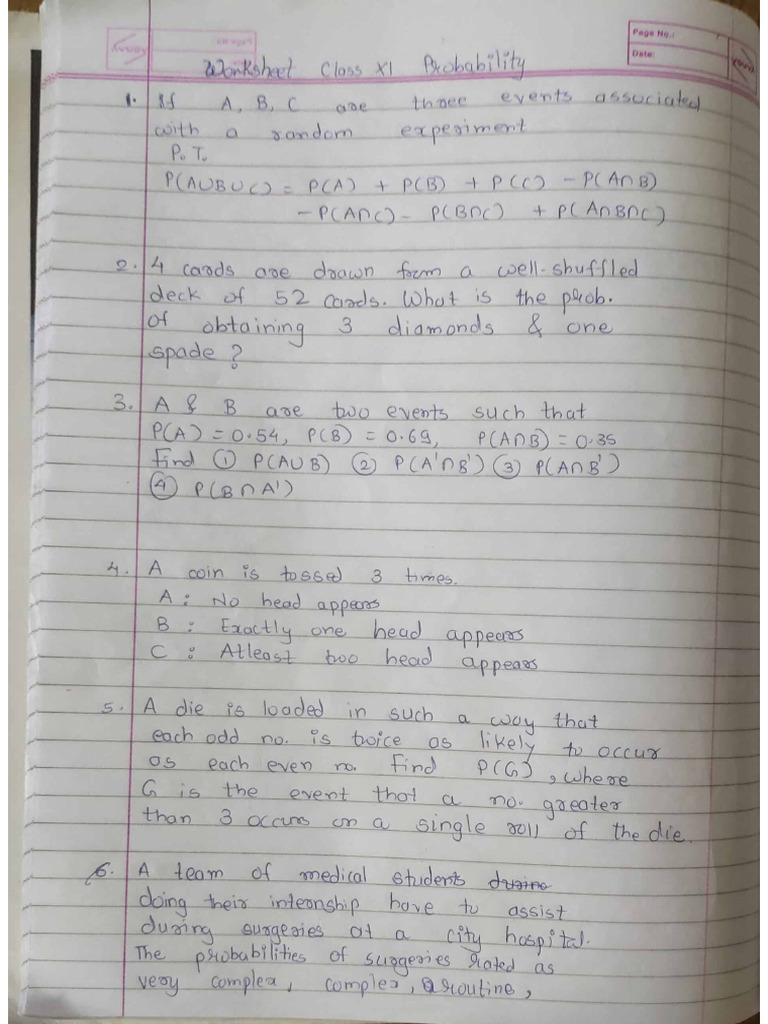 Page No.:
Date:
Worksheet Class XI Probability
1. If A, B, C are three events associated
with a random experiment
P. T.
P(A∪B∪C) = P(A) + P(B) + P(C) - P(A∩B)
- P(A∩C) - P(B∩C) + P(A∩B∩C)
2. 4 cards are drawn form a well-shuffled
deck of 52 cards. What is the prob.
of obtaining 3 diamonds & one
spade?
3. A & B are two events such that
P(A) = 0.54, P(B) = 0.69, P(A∩B) = 0.35
Find ① P(A∪B) ② P(A'∩B') ③ P(A∩B')
④ P(B∩A')
4. A coin is tossed 3 times.
A : No head appears
B : Exactly one head appears
C : Atleast two head appears
5. A die is loaded in such a way that
each odd no. is twice as likely to occur
as each even no. Find P(G), where
G is the event that a no. greater
than 3 occurs on a single roll of the die.
6. A team of medical students during
doing their internship have to assist
during surgeries at a city hospital.
The probabilities of surgeries rated as
very complex, complex, routine,